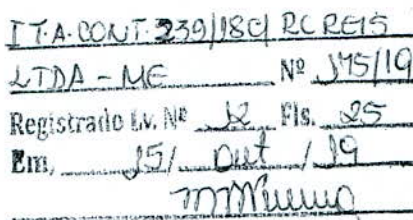 I T.A. CONT. 239/18 C/ RC REIS
LTDA - ME Nº 175/19
Registrado Lv. Nº 12 Fls. 25
Em, 15/ Out / 19